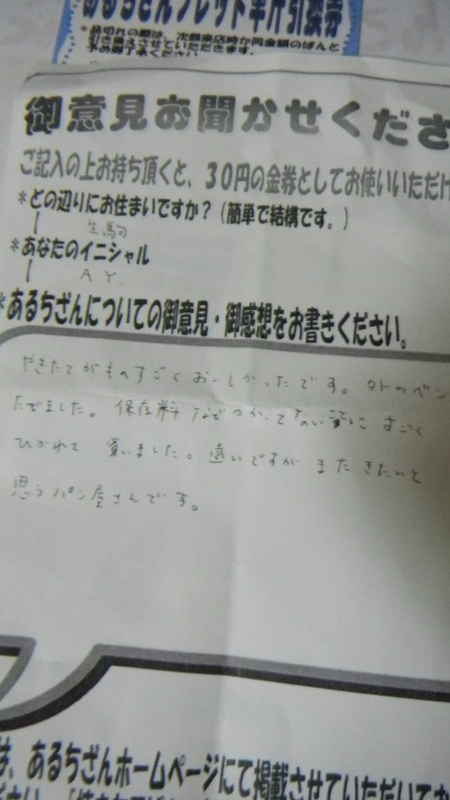 あるちざんブレッド半斤引換券
*品切れの際は、次回来店時か同金額のぱんと
引き替えさせていただきます。
予め御了承ください
御意見お聞かせくださ
ご記入の上お持ち頂くと、30円の金券としてお使いいただけ
*どの辺りにお住まいですか？(簡単で結構です。)
生駒
*あなたのイニシャル
A.Y.
*あるちざんについての御意見・御感想をお書きください。
やきたてがものすごくおいしかったです。外のベン
たべました。保存料などつかってない姿に すごく
ひかれて 買いました。遠いですが またきたいて
思うパン屋さんです。
は、あるちざんホームページにて掲載させていただいてお